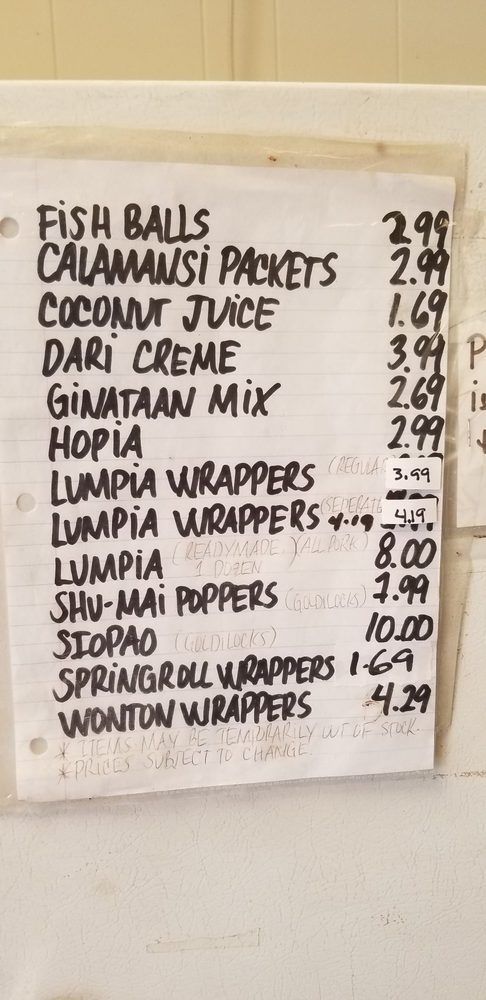 FISH BALLS 2.99
CALAMANSI PACKETS 2.99
COCONUT JUICE 1.69
DARI CREME 3.99
GINATAAN MIX 2.69
HOPIA 2.99
LUMPIA WRAPPERS (REGULAR 3.99
LUMPIA WRAPPERS (SEPERATE 4.19 4.19
LUMPIA (READYMADE) (ALL PORK) 8.00
1 DOZEN
SHU-MAI POPPERS (GOLDILOCKS) 7.99
SIOPAO (GOLDILOCKS) 10.00
SPRINGROLL WRAPPERS 1.69
WONTON WRAPPERS 4.29
* ITEMS MAY BE TEMPORARILY OUT OF STOCK.
* PRICES SUBJECT TO CHANGE.
P
is